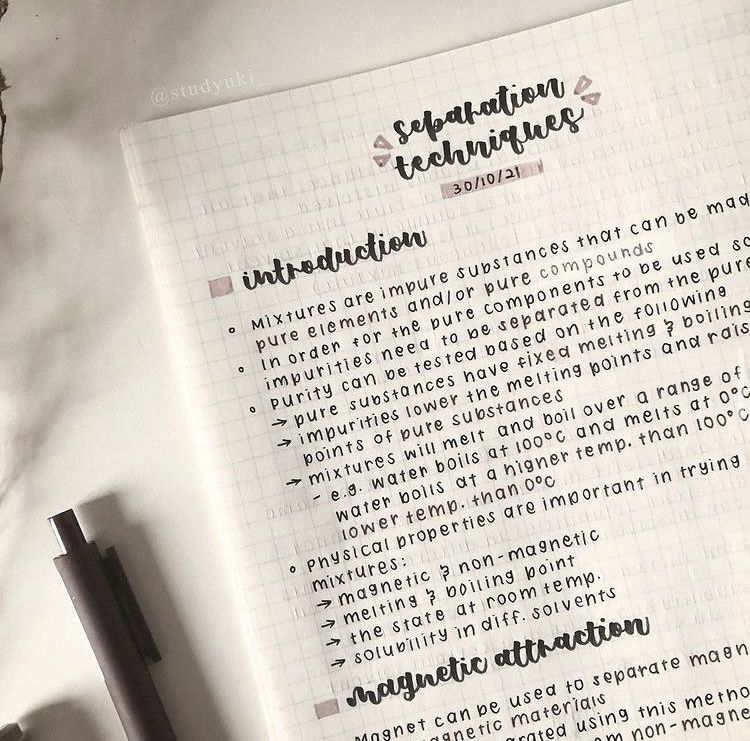 @studyuki_
separation
techniques
30/10/21
introduction
• Mixtures are impure substances that can be mad
pure elements and/or pure compounds
• In order for the pure components to be used so
impurities need to be separated from the pure
• Purity can be tested based on the following
→ pure substances have fixed melting & boiling
→ impurities lower the melting points and rais
points of pure substances
→ mixtures will melt and boil over a range of
- e.g. water boils at 100°C and melts at 0°C
water boils at a higher temp. than 100°C
lower temp. than 0°C
• Physical properties are important in trying
mixtures:
→ magnetic & non-magnetic
→ melting & boiling point
→ the state at room temp.
→ solubility in diff. solvents
magnetic attraction
Magnet can be used to separate magn
agnetic materials
rated using this metho
om non-magne